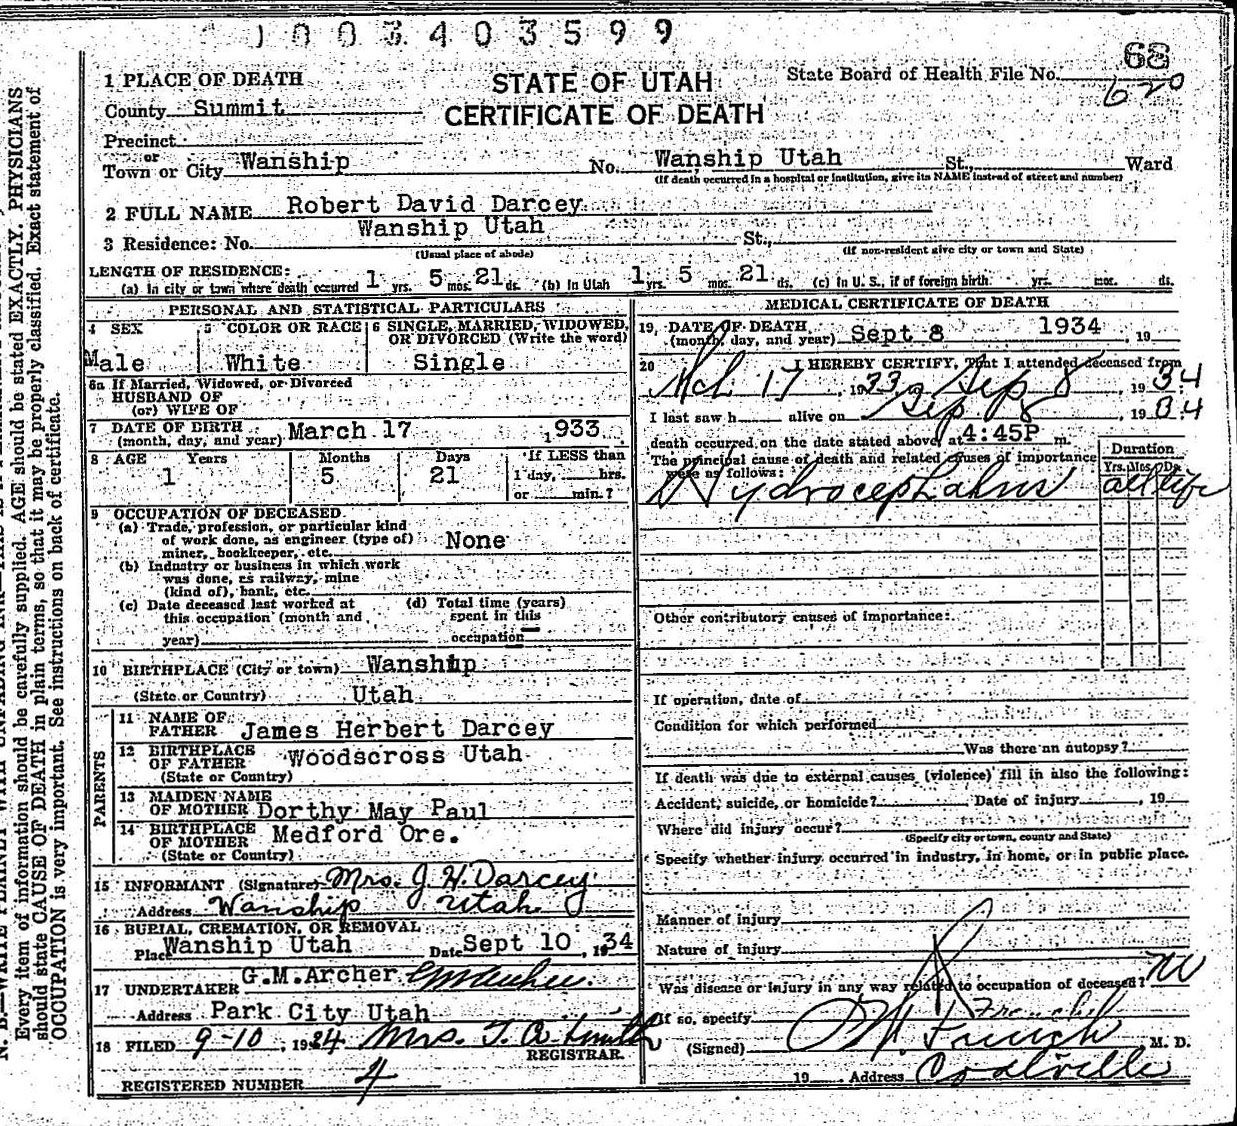 1003403599
68
620
1 PLACE OF DEATH
STATE OF UTAH
State Board of Health File No.
County Summit
CERTIFICATE OF DEATH
Precinct
or
Town or City Wanship No. Wanship Utah St., Ward
(If death occurred in a hospital or institution, give its NAME instead of street and number)
2 FULL NAME Robert David Darcey
3 Residence: No. Wanship Utah St.,
(Usual place of abode) (If non-resident give city or town and State)
LENGTH OF RESIDENCE:
(a) In city or town where death occurred 1 yrs. 5 mos. 21 ds. (b) In Utah 1 yrs. 5 mos. 21 ds. (c) In U. S., if of foreign birth yrs. mos. ds.
PERSONAL AND STATISTICAL PARTICULARS
4 SEX 5 COLOR OR RACE 6 SINGLE, MARRIED, WIDOWED,
OR DIVORCED (Write the word)
Male White Single
6a If Married, Widowed, or Divorced
HUSBAND OF
(or) WIFE OF
7 DATE OF BIRTH
(month, day, and year) March 17 1933
8 AGE Years Months Days If LESS than
1 5 21 1 day, hrs.
or min.?
9 OCCUPATION OF DECEASED
(a) Trade, profession, or particular kind
of work done, as engineer (type of)
miner, bookkeeper, etc. None
(b) Industry or business in which work
was done, as railway, mine
(kind of), bank, etc.
(c) Date deceased last worked at (d) Total time (years)
this occupation (month and spent in this
year) occupation
10 BIRTHPLACE (City or town) Wanship
(State or Country) Utah
PARENTS
11 NAME OF
FATHER James Herbert Darcey
12 BIRTHPLACE
OF FATHER Woodscross Utah
(State or Country)
13 MAIDEN NAME
OF MOTHER Dorthy May Paul
14 BIRTHPLACE
OF MOTHER Medford Ore.
(State or Country)
15 INFORMANT (Signature) Mrs. J. H. Darcey
Address Wanship Utah
16 BURIAL, CREMATION, OR REMOVAL
Place Wanship Utah Date Sept 10, 1934
17 UNDERTAKER G.M.Archer GM Archer
Address Park City Utah
18 FILED 9-10, 1934 Mrs. T. A. Smith
REGISTRAR.
REGISTERED NUMBER 4
MEDICAL CERTIFICATE OF DEATH
19 DATE OF DEATH
(month, day, and year) Sept 8 1934, 19
20 I HEREBY CERTIFY, That I attended deceased from
Mch 17, 1933, Sep 8, 1934
I last saw h alive on Sep 8, 1934
death occurred on the date stated above, at 4:45P m.
The principal cause of death and related causes of importance
were as follows:
Duration
Yrs. Mos. Ds.
Hydrocephalus all life
Other contributory causes of importance:
If operation, date of
Condition for which performed
Was there an autopsy?
If death was due to external causes (violence) fill in also the following:
Accident, suicide, or homicide? Date of injury, 19
Where did injury occur?
(Specify city or town, county and State)
Specify whether injury occurred in industry, in home, or in public place.
Manner of injury
Nature of injury
Was disease or injury in any way related to occupation of deceased? No
If so, specify
Frenchel
(Signed) French M. D.
19 Address Coalville
Every item of information should be carefully supplied. AGE should be stated EXACTLY. PHYSICIANS
should state CAUSE OF DEATH in plain terms, so that it may be properly classified. Exact statement of
OCCUPATION is very important. See instructions on back of certificate.